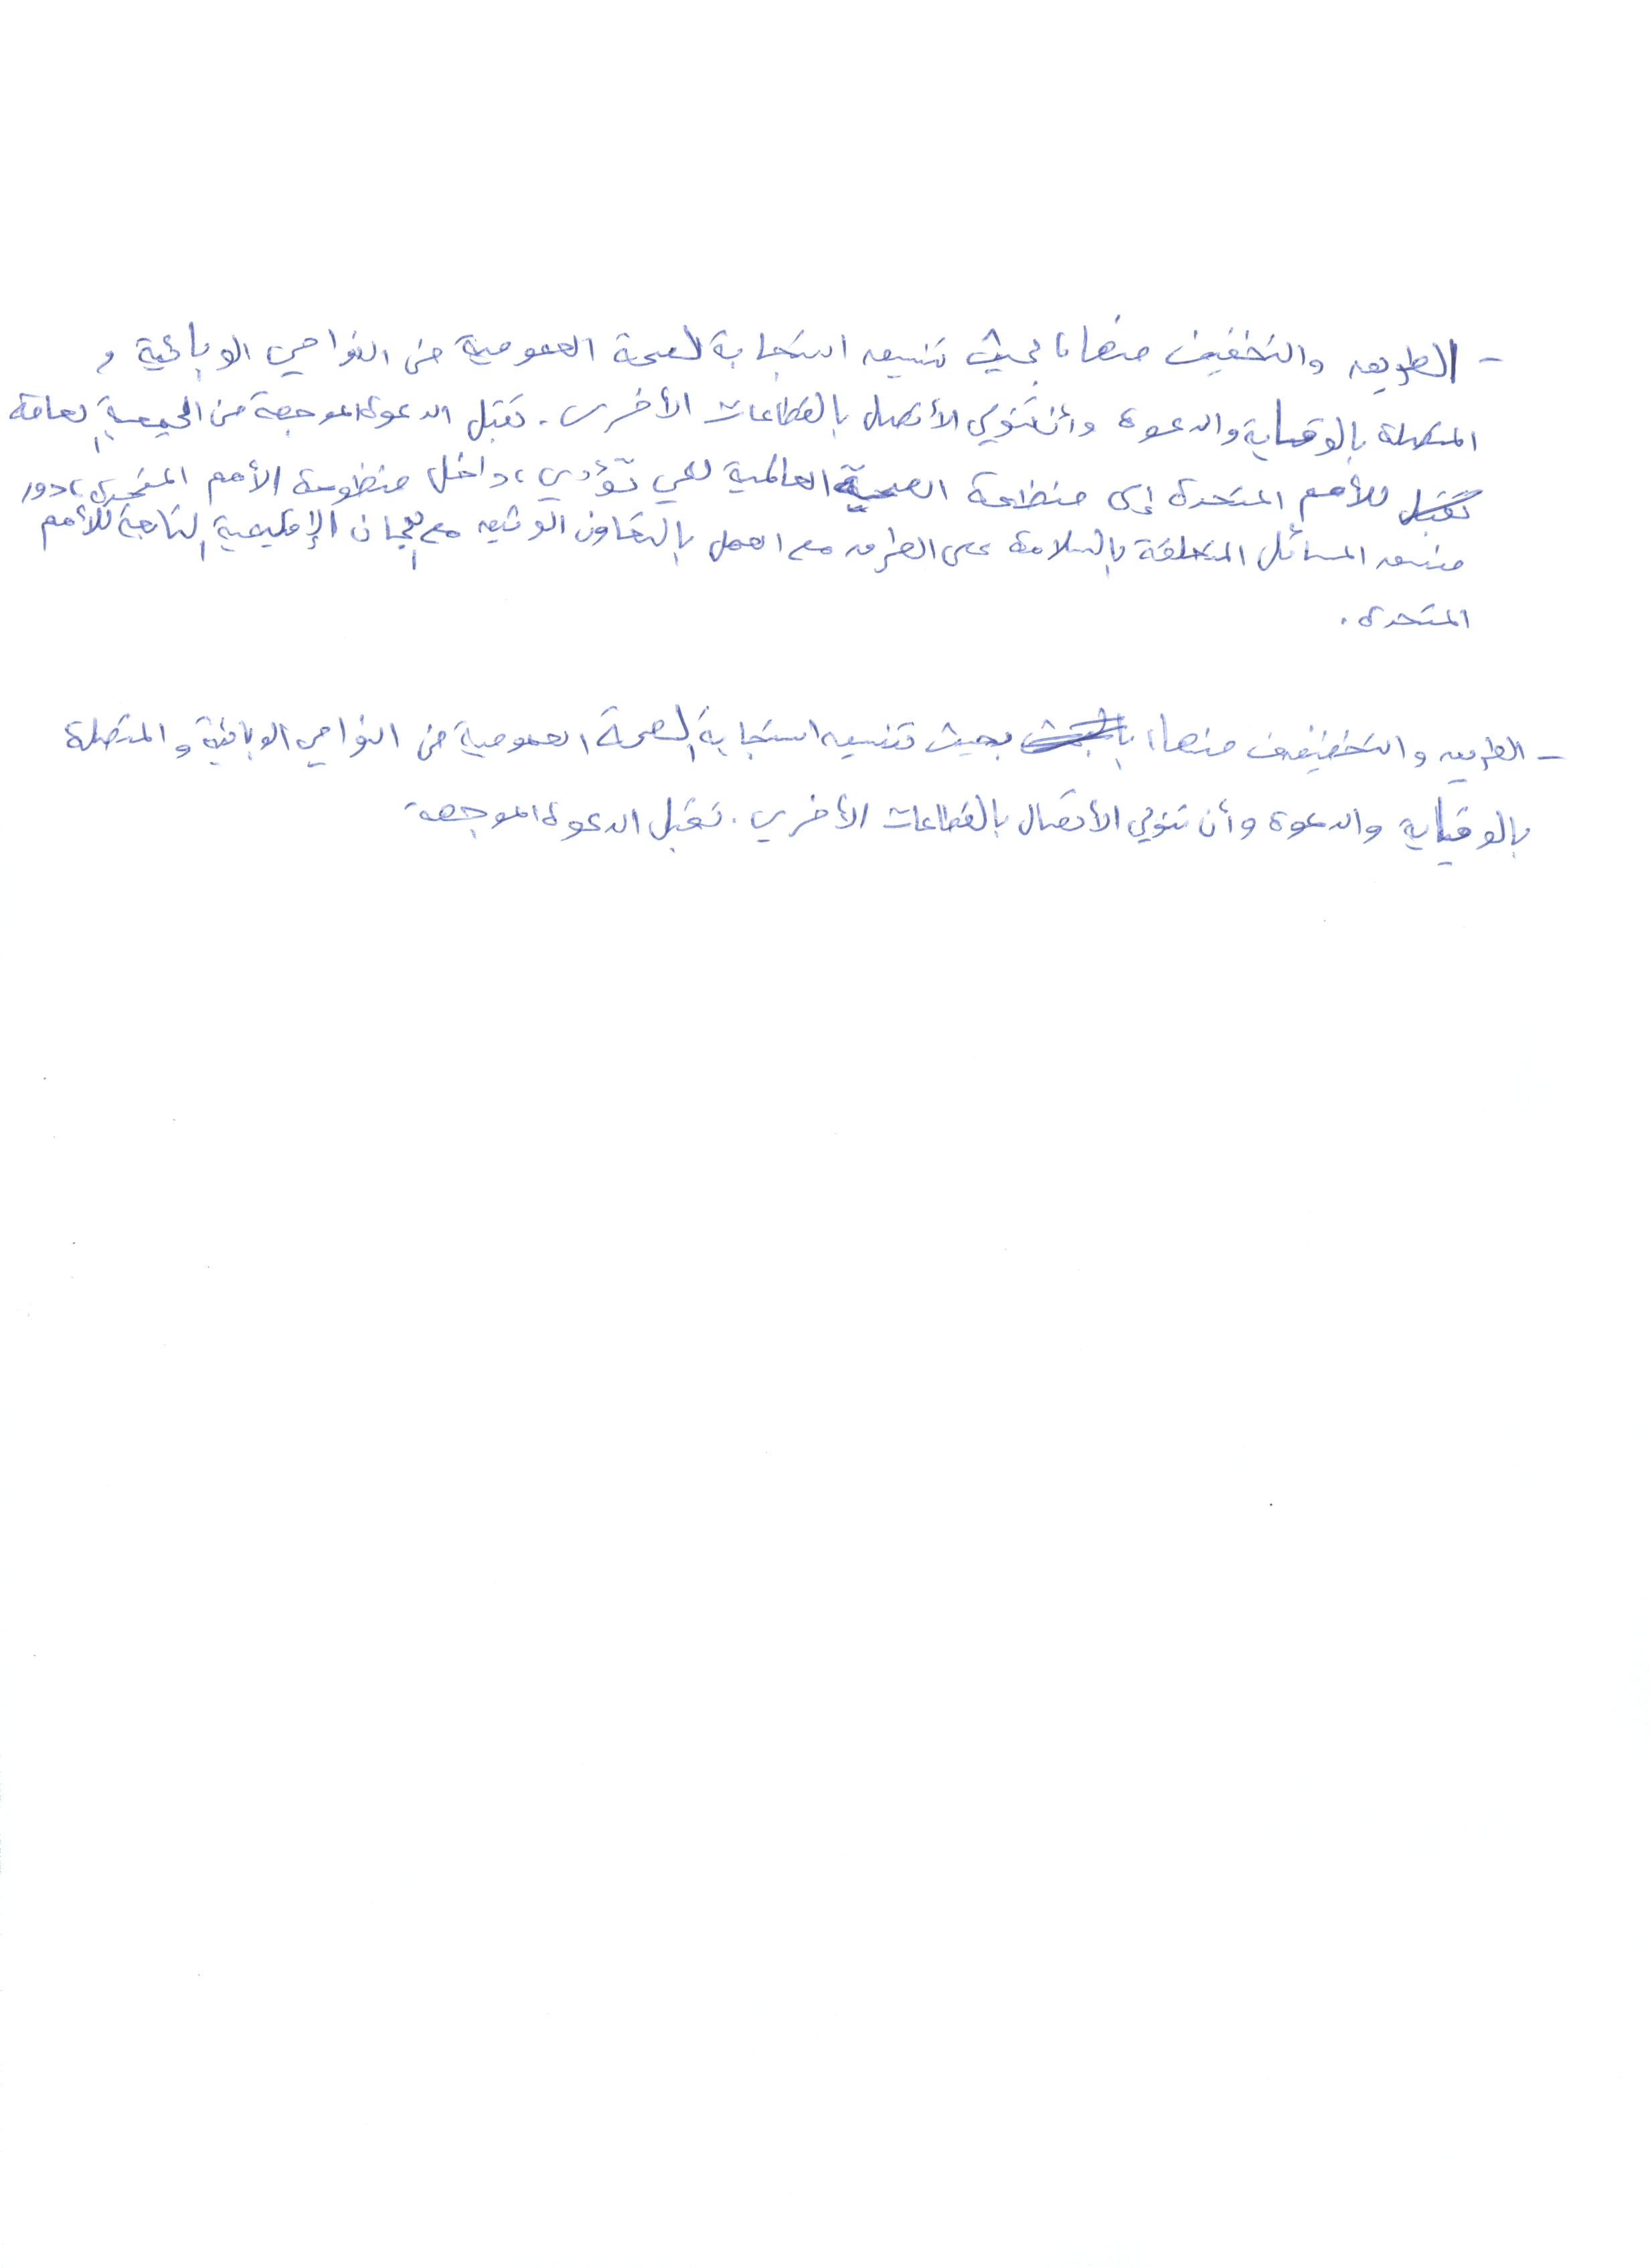 - الطريق والتخفيف منها، بحيث تنسيق استجابة الصحة العمومية من النواحي الوبائية و
المتصلة بالوقاية والدعوة وأن تتولي الأتصال بالقطاعات الأخرى. تقبل الدعوة الموجهة من الجمعية العامة
للأمم المتحدة إلى منظمة الصحية العالمية لكي تؤدي، داخل منظومة الأمم المتحدة، دور
منسق المسائل المتعلقة بالسلامة على الطرق مع العمل بالتعاون الوثيق مع اللجان الإقليمية التابعة للأمم
المتحدة.
- الطريق والتخفيف منها، بحيث تنسيق استجابة الصحة العمومية من النواحي الوبائية والمتصلة
بالوقاية والدعوة وأن تتولي الأتصال بالقطاعات الأخري. تقبل الدعوة الموجهة